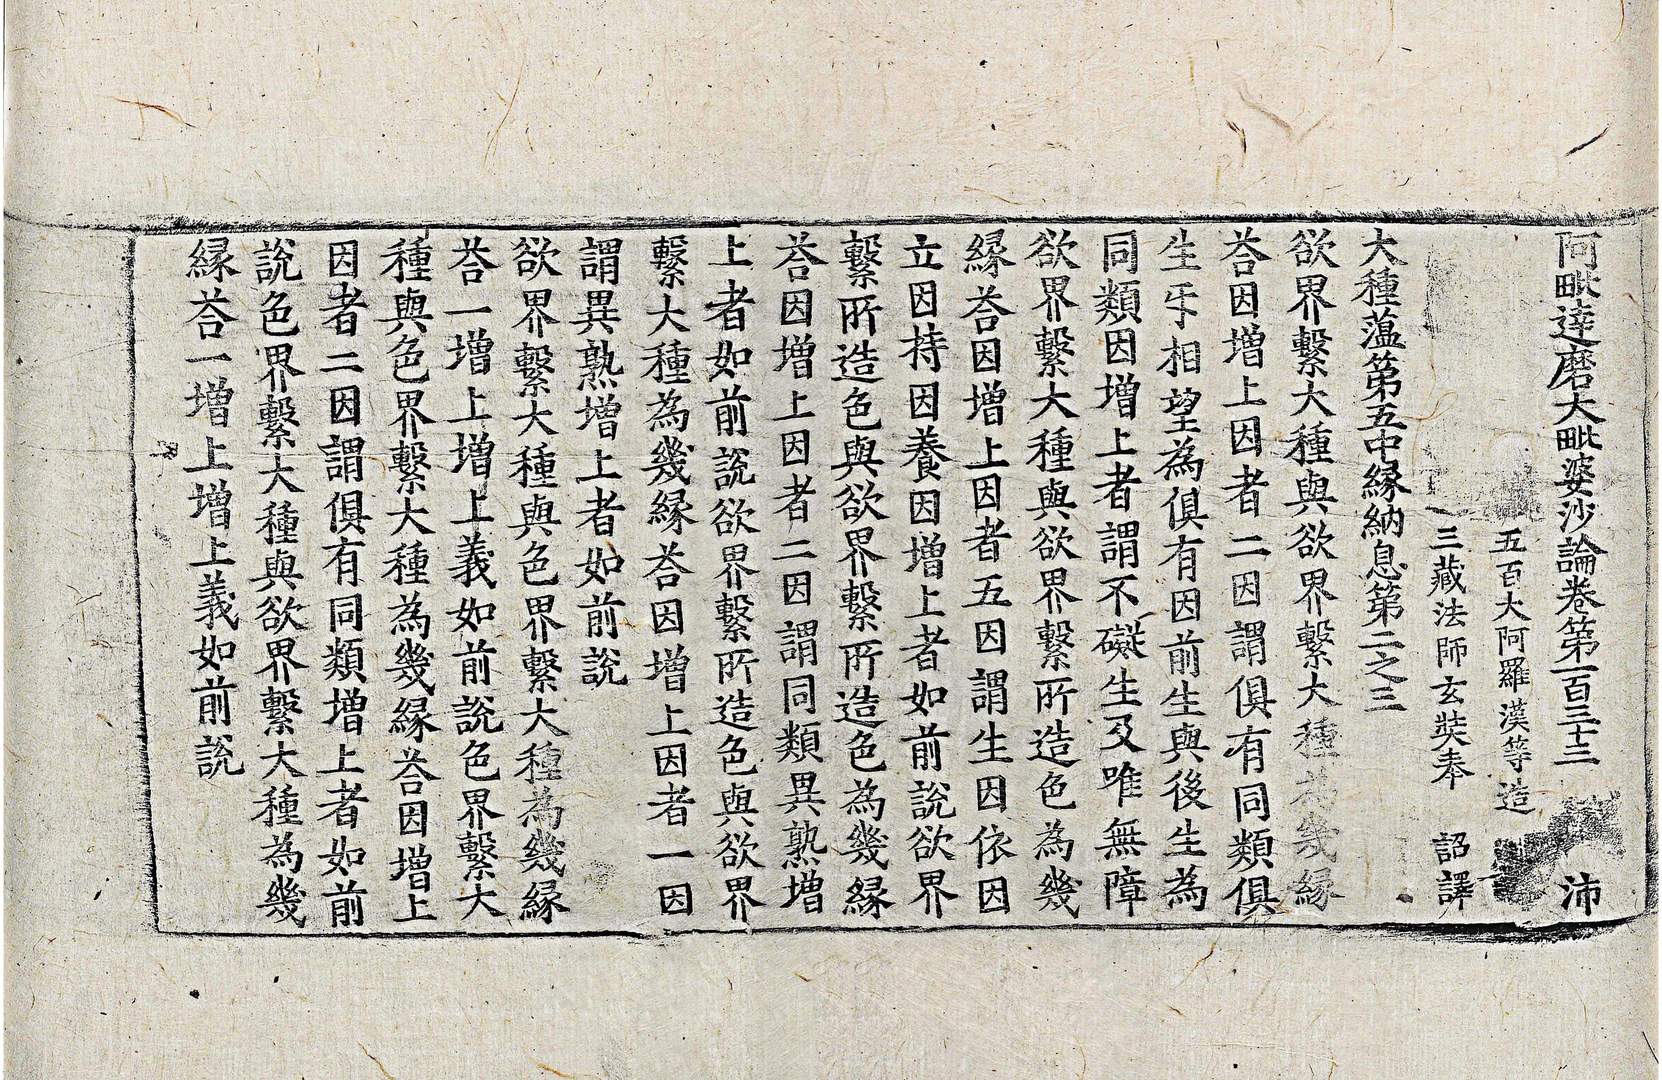 阿毗達磨大毗婆沙論卷第一百三十三 沛
五百大阿羅漢等造
三藏法師玄奘奉 詔譯
大種蘊第五中縁納息第二之三
欲界繫大種與欲界繫大種為幾縁
荅因增上因者二因謂俱有同類俱
生㸦相望為俱有因前生與後生為
同類因增上者謂不礙生及唯無障
欲界繫大種與欲界繫所造色為幾
縁荅因增上因者五因謂生因依因
立因持因養因增上者如前說欲界
繫所造色與欲界繫所造色為幾縁
荅因增上因者二因謂同類異熟增
上者如前說欲界繫所造色與欲界
繫大種為幾縁荅因增上因者一因
謂異熟增上者如前說
欲界繫大種與色界繫大種為幾縁
荅一增上增上義如前說色界繫大
種與色界繫大種為幾縁荅因增上
因者二因謂俱有同類增上者如前
說色界繫大種與欲界繫大種為幾
縁荅一增上增上義如前說